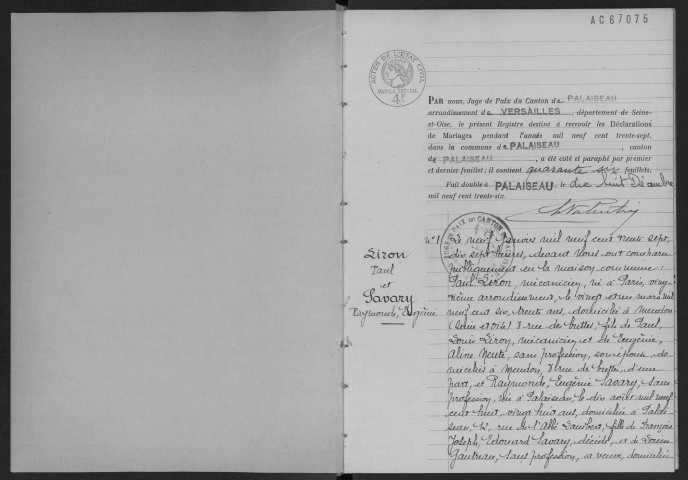 AC67075
ACTES DE L'ÉTAT CIVIL
PAPIER SPÉCIAL
4F
PAR nous, Juge de Paix du Canton de PALAISEAU
arrondissement de VERSAILLES, département de Seine-
et-Oise, le présent Registre destiné à recevoir les Déclarations
de Mariages pendant l'année mil neuf cent trente-sept,
dans la commune de PALAISEAU, canton
de PALAISEAU, a été coté et paraphé par premier
et dernier feuillet; il contient quarante six feuillets.
Fait double à PALAISEAU, le dix huit Décembre
mil neuf cent trente-six.
N° 1
Liron
Paul
et
Savary
Raymonde, Eugénie
Le neuf Janvier mil neuf cent trente sept,
dix sept heures, devant Nous ont comparu
publiquement en la maison commune:
Paul Liron, mécanicien, né à Paris, ving-
tième arrondissement, le vingt et un mars mil
neuf cent six, trente ans, domicilié à Meudon
(Seine et Oise) rue des buttes, fils de Paul,
Louis Liron, mécanicien, et de Eugénie,
Aline sans profession, son épouse, do-
miciliés à Meudon, rue des buttes, d'une
part, et Raymonde, Eugénie Savary, sans
profession, née à Palaiseau, le dix août mil neuf
cent huit, vingt huit ans, domiciliée à Palai-
seau, 12, rue de l'Abbé Lambert, fille de François
Joseph, Edouard Savary, décédé, et de Louise
Gautreau, sans profession, sa veuve, domiciliée